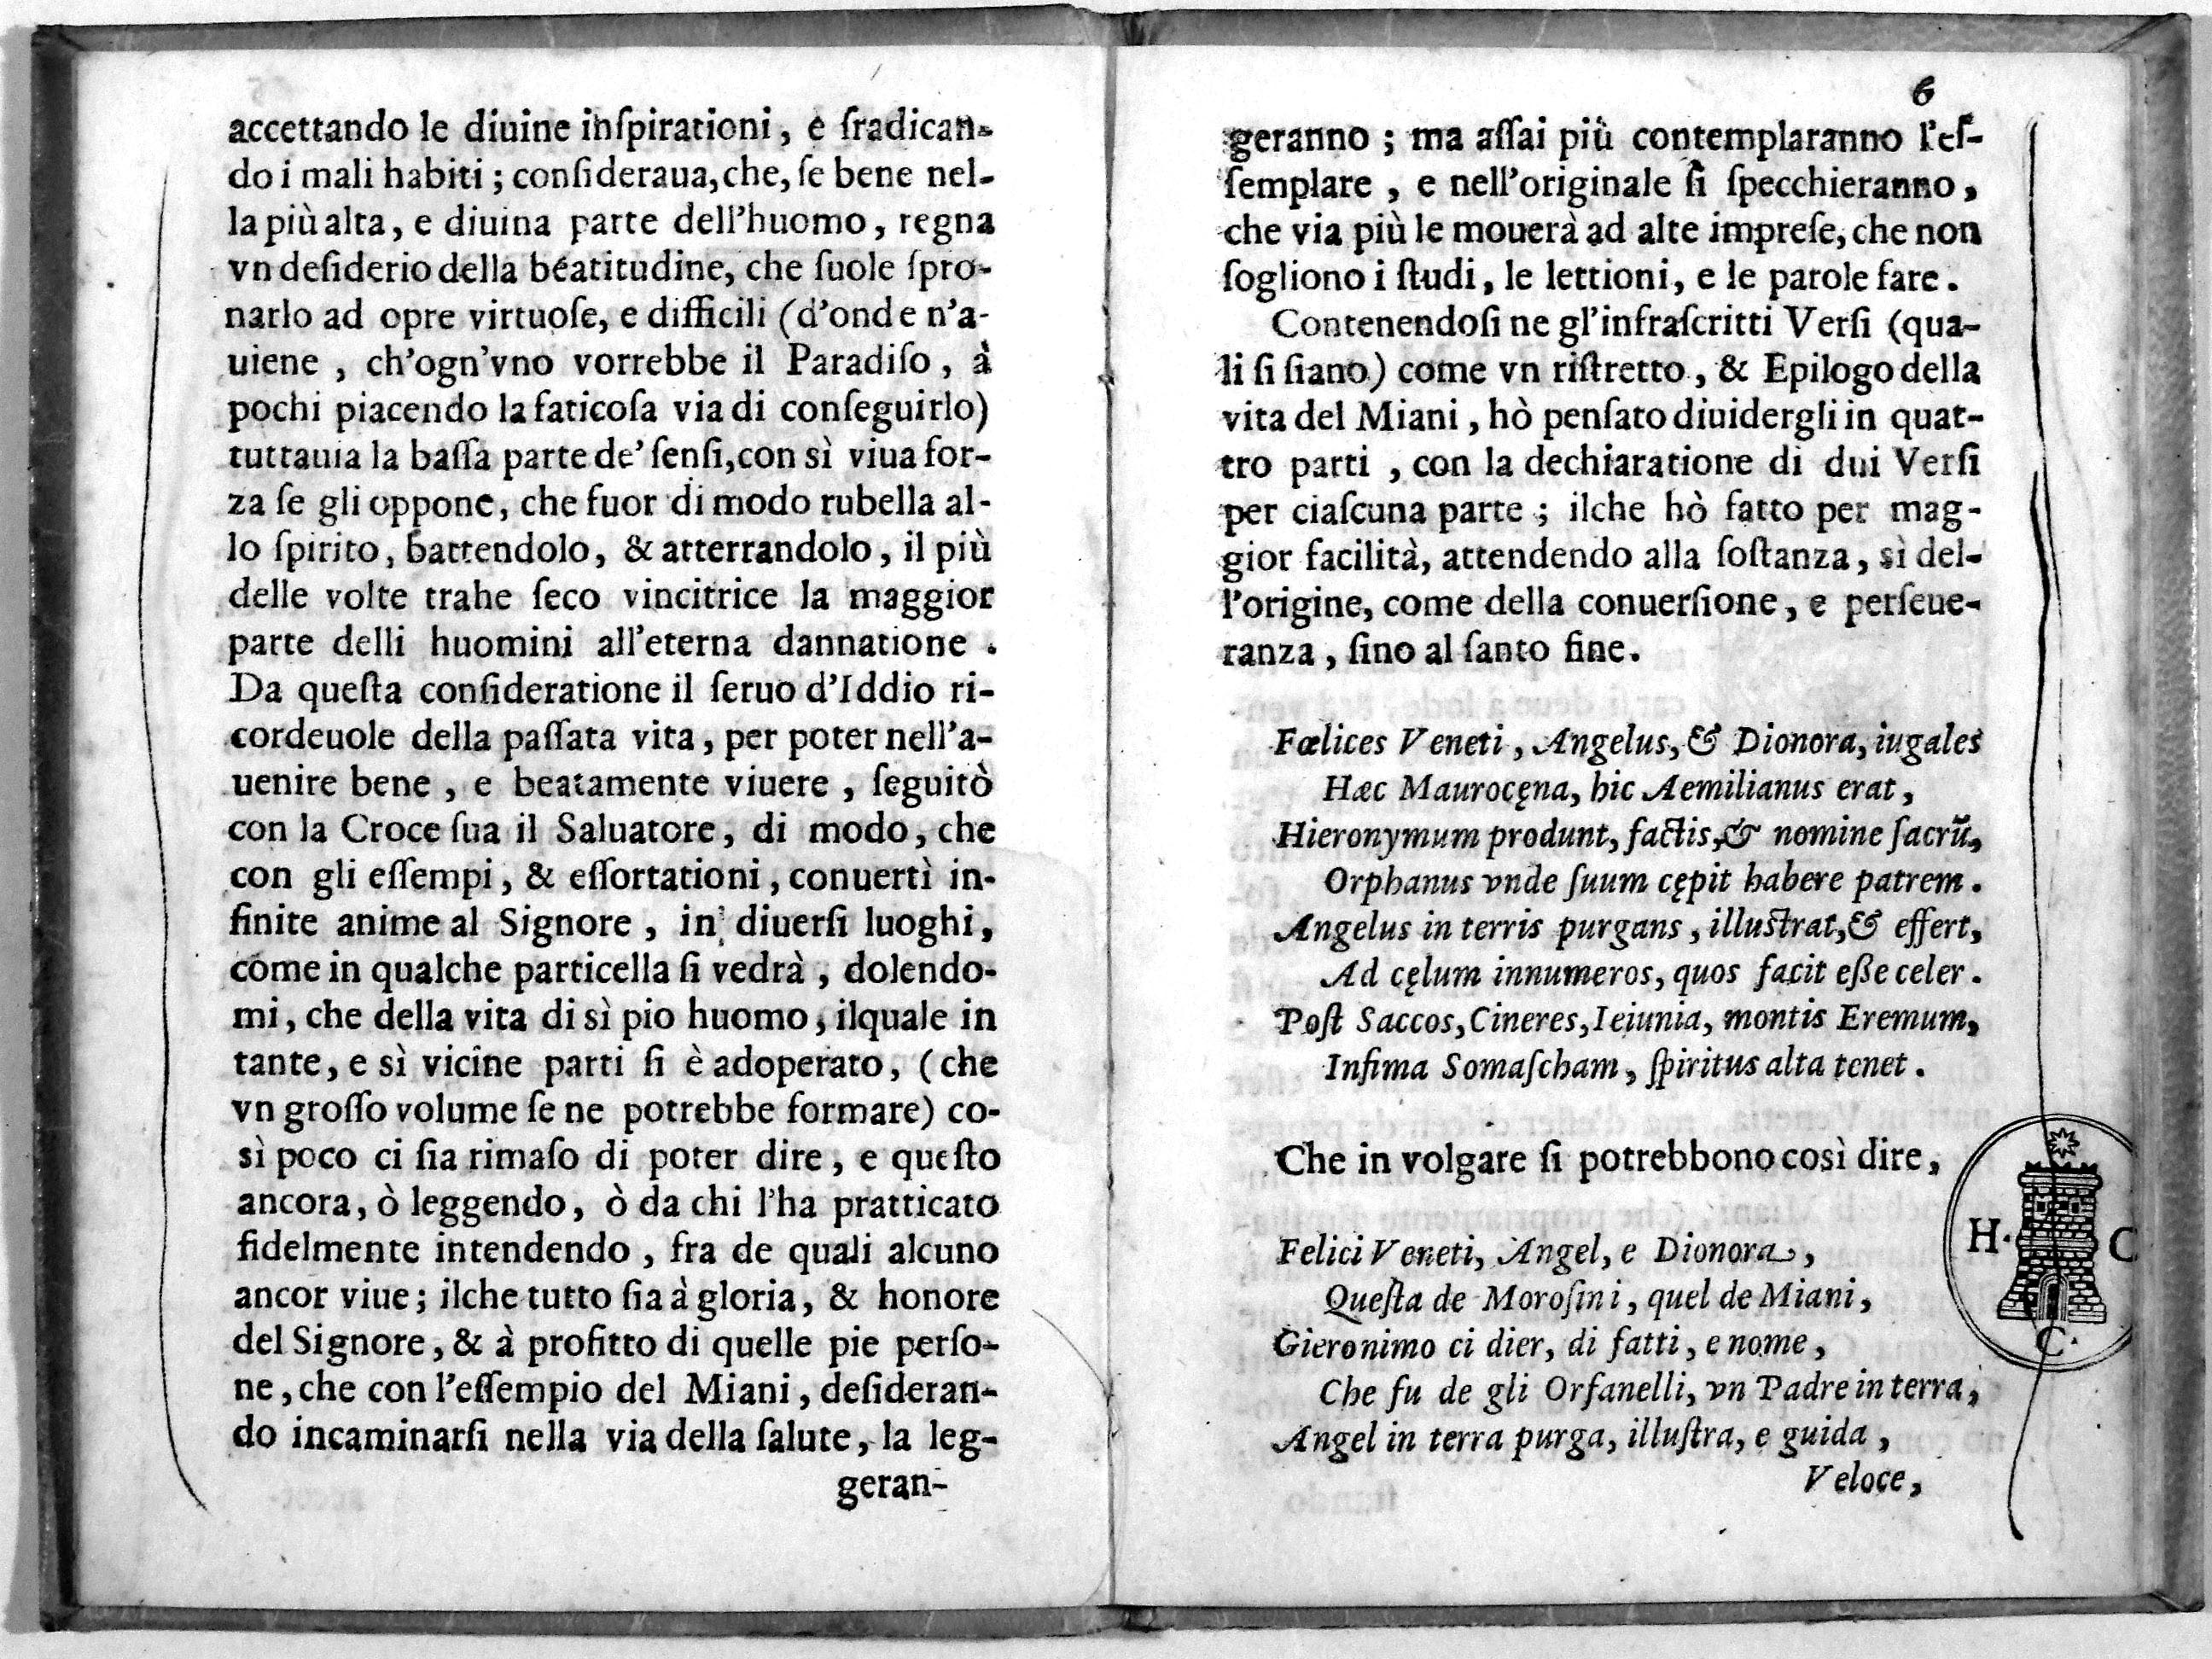 accettando le diuine inſpirationi, e ſradican-
do i mali habiti; conſideraua, che, ſe bene nel-
la più alta, e diuina parte dell'huomo, regna
vn deſiderio della beatitudine, che ſuole ſpro-
narlo ad opre virtuoſe, e difficili (d'onde n'a-
uiene, ch'ogn'vno vorrebbe il Paradiſo, à
pochi piacendo la faticoſa via di conſeguirlo)
tuttauia la baſſa parte de' ſenſi, con sì viua for-
za ſe gli oppone, che fuor di modo rubella al-
lo ſpirito, battendolo, & atterrandolo, il più
delle volte trahe ſeco vincitrice la maggior
parte delli huomini all'eterna dannatione.
Da queſta conſideratione il ſeruo d'Iddio ri-
cordeuole della paſſata vita, per poter nell'a-
uenire bene, e beatamente viuere, ſeguitò
con la Croce ſua il Saluatore, di modo, che
con gli eſſempi, & eſſortationi, conuertì in-
finite anime al Signore, in diuerſi luoghi,
come in qualche particella ſi vedrà, dolendo-
mi, che della vita di sì pio huomo, ilquale in
tante, e sì vicine parti ſi è adoperato, (che
vn groſſo volume ſe ne potrebbe formare) co-
sì poco ci ſia rimaſo di poter dire, e queſto
ancora, ò leggendo, ò da chi l'ha pratticato
fidelmente intendendo, fra de quali alcuno
ancor viue; ilche tutto ſia à gloria, & honore
del Signore, & à profitto di quelle pie perſo-
ne, che con l'eſſempio del Miani, deſideran-
do incaminarſi nella via della ſalute, la leg-
geran-
6
geranno; ma aſſai più contemplaranno l'eſ-
ſemplare, e nell'originale ſi ſpecchieranno,
che via più le mouerà ad alte impreſe, che non
ſogliono i ſtudi, le lettioni, e le parole fare.
Contenendoſi ne gl'infraſcritti Verſi (qua-
li ſi ſiano) come vn riſtretto, & Epilogo della
vita del Miani, hò penſato diuidergli in quat-
tro parti, con la dechiaratione di dui Verſi
per ciaſcuna parte; ilche hò fatto per mag-
gior facilità, attendendo alla ſoſtanza, sì del-
l'origine, come della conuerſione, e perſeue-
ranza, ſino al ſanto fine.
Fœlices Veneti, Angelus, & Dionora, iugales
Hæc Maurocęna, hic Aemilianus erat,
Hieronymum produnt, factis, & nomine ſacrũ,
Orphanus vnde ſuum cępit habere patrem.
Angelus in terris purgans, illuſtrat, & effert,
Ad cęlum innumeros, quos facit eße celer.
Poſt Saccos, Cineres, Ieiunia, montis Eremum,
Infima Somaſcham, ſpiritus alta tenet.
Che in volgare ſi potrebbono così dire,
Felici Veneti, Angel, e Dionora,
Queſta de Moroſini, quel de Miani,
Gieronimo ci dier, di fatti, e nome,
Che fu de gli Orfanelli, vn Padre in terra,
Angel in terra purga, illuſtra, e guida,
Veloce,
H. C
C.